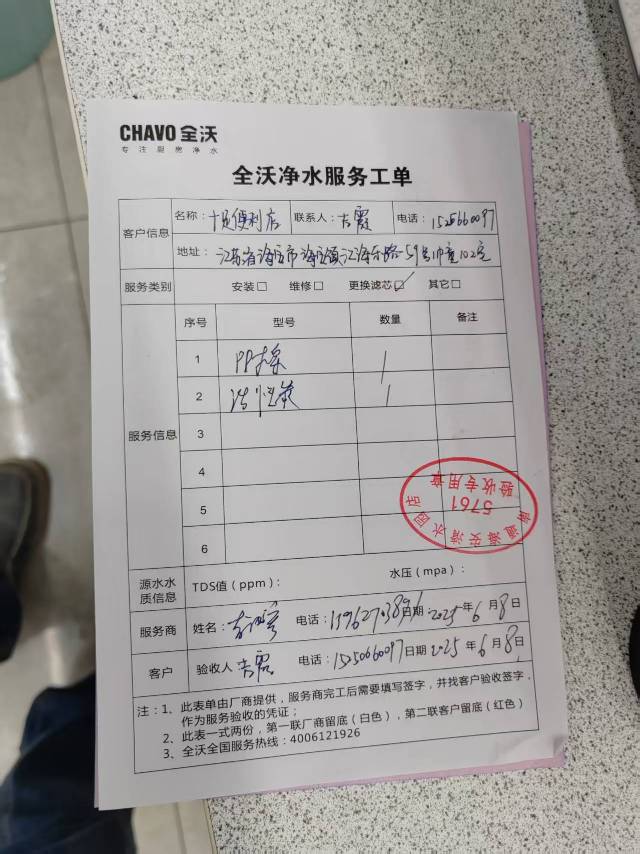 CHAVO 全沃
专注厨房净水
全沃净水服务工单
客户信息 名称：十足便利店 联系人：吉霞 电话：15250660097
地址：江苏省海安市海安镇江海东路59号 102室
服务类别 安装□ 维修□ 更换滤芯☑ 其它□
服务信息 序号 型号 数量 备注
1 PP棉 1
2 活性炭 1
3
4
5
6
南通海安清水园店
5761
验收专用章
源水水质信息 TDS值（ppm）： 水压（mpa）：
服务商 姓名： 电话： 日期：2025年6月8日
客户 验收人 吉霞 电话：15250660097 日期 2025年6月8日
注：1、此表单由厂商提供，服务商完工后需要填写签字，并找客户验收签字，
作为服务验收的凭证；
2、此表一式两份，第一联厂商留底（白色），第二联客户留底（红色）
3、全沃全国服务热线：4006121926